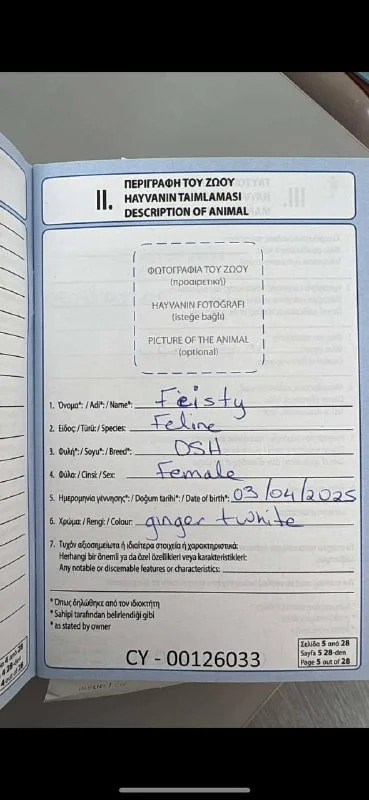 II.
ΠΕΡΙΓΡΑΦΗ ΤΟΥ ΖΩΟΥ
HAYVANIN TAIMLAMASI
DESCRIPTION OF ANIMAL
ΦΩΤΟΓΡΑΦΙΑ ΤΟΥ ΖΩΟΥ
(προαιρετική)
HAYVANIN FOTOĞRAFI
(isteğe bağlı)
PICTURE OF THE ANIMAL
(optional)
1. Όνομα*: / Adi*: / Name*: Feisty
2. Είδος /Türü: / Species: Feline
3. Φυλή*: / Soyu*: / Breed*: DSH
4. Φύλο: / Cinsi: / Sex: Female
5. Ημερομηνία γέννησης*: / Doğum tarihi*: / Date of birth*: 03/04/2025
6. Χρώμα: / Rengi: / Colour: ginger + white
7. Τυχόν αξιοσημείωτα ή ιδιαίτερα στοιχεία ή χαρακτηριστικά:
Herhangi bir önemli ya da özel özellikleri veya karakteristikleri:
Any notable or discernable features or characteristics:
* Όπως δηλώθηκε από τον ιδιοκτήτη
* Sahipi tarafından belirlendiği gibi
* as stated by owner
CY - 00126033
Σελίδα 5 από 28
Sayfa 5 28-den
Page 5 out of 28